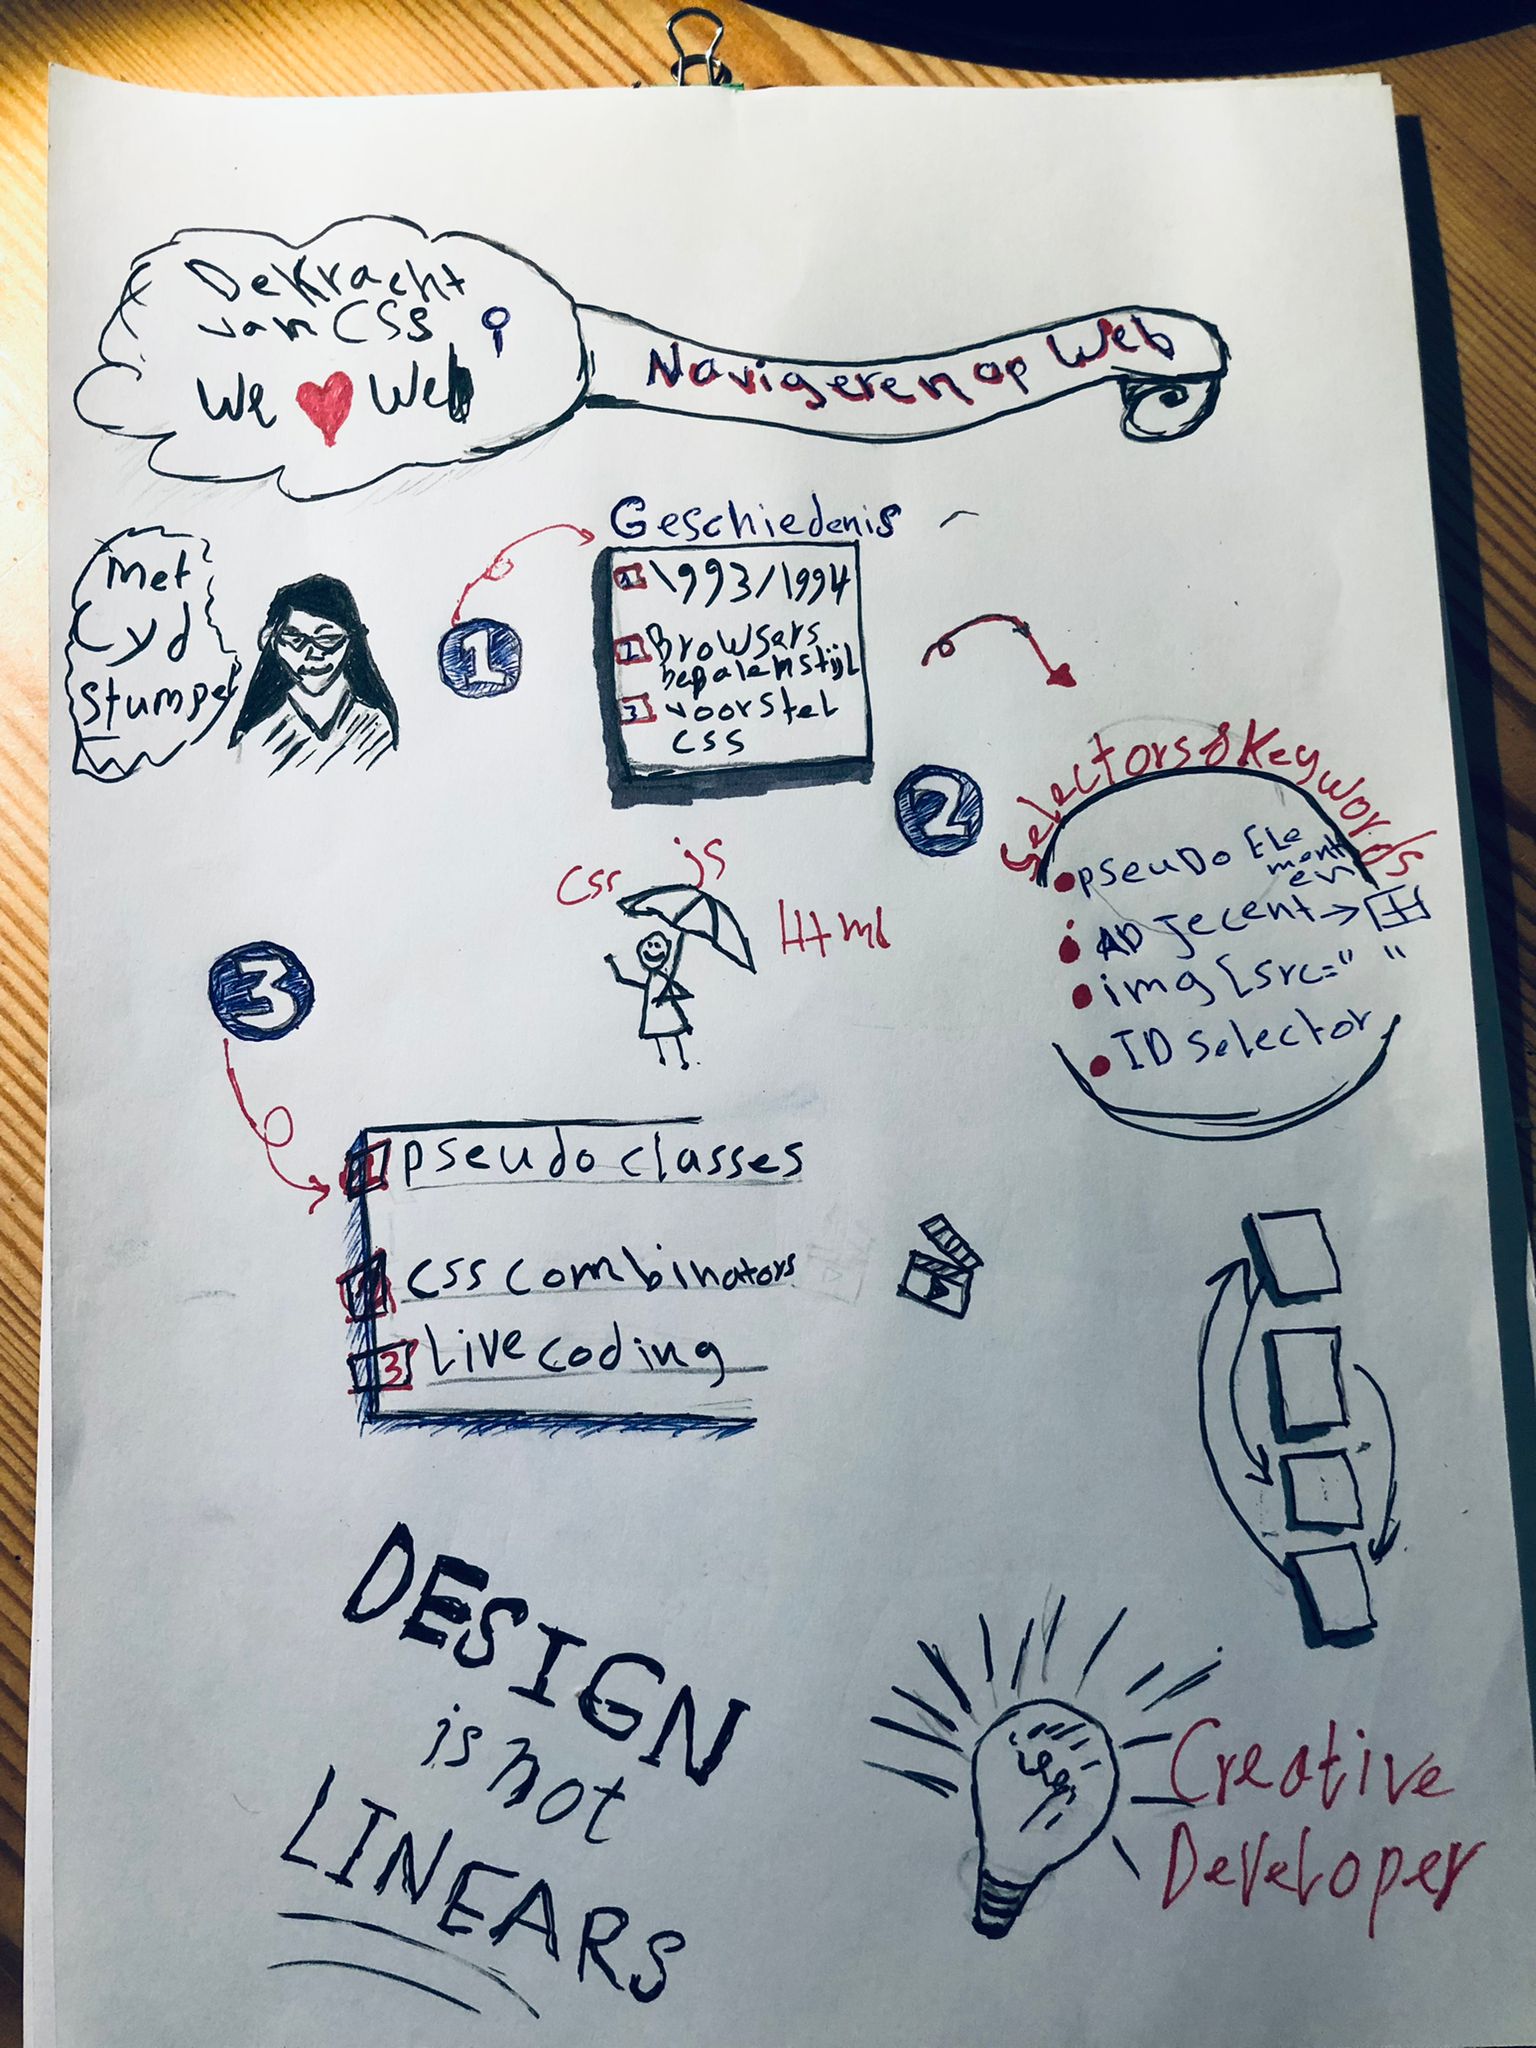 De Kracht
van CSS
We ❤ Web
Navigeren op Web
Met
Cyd
Stumpel
1
Geschiedenis
1 1993/1994
2 Browsers
bepalen stijl
3 voorstel
CSS
2
Selectors & Keywords
pseudo Ele
ment
en
ADjecent →
img [src=" "
ID selector
css js
Html
3
1 pseudo classes
css combinators
3 Live coding
DESIGN
is not
LINEARS
Creative
Developer